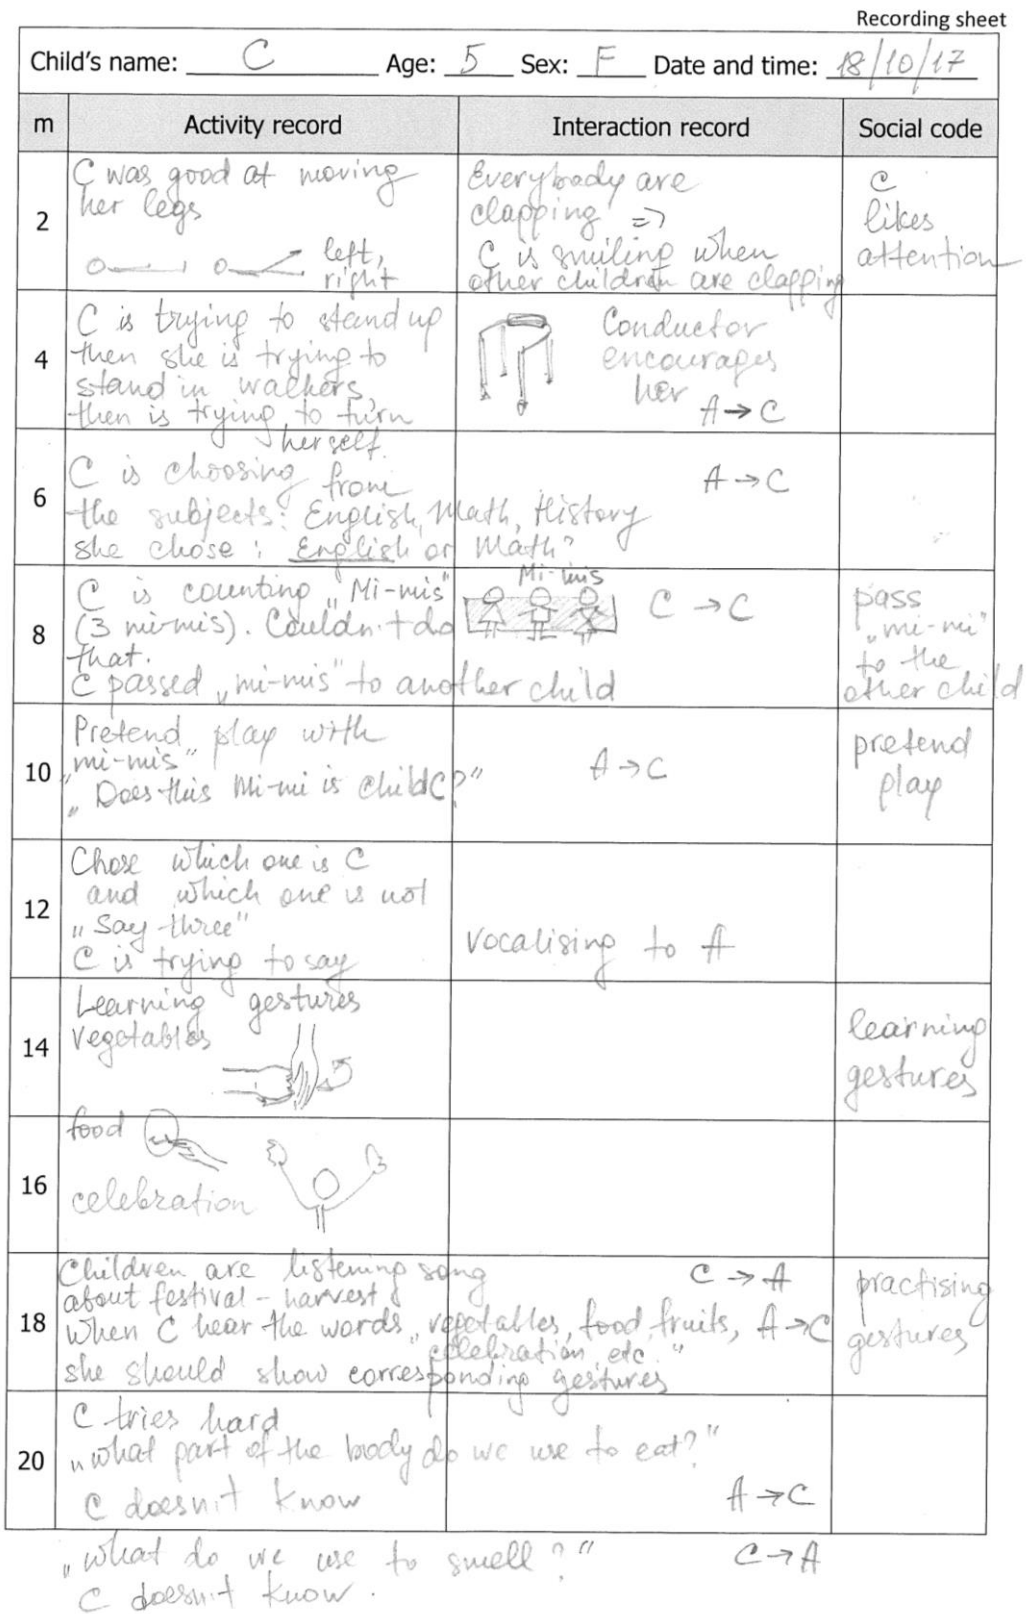 Recording sheet
Child's name: C Age: 5 Sex: F Date and time: 18/10/17
m Activity record Interaction record Social code
2
C was good at moving
her legs
left,
right
Everybody are
clapping =>
C is smiling when
other children are clapping
C
likes
attention
4
C is trying to stand up
then she is trying to
stand in walkers,
then is trying to turn
herself.
Conductor
encourages
her
A → C
6
C is choosing from
the subjects: English, Math, History
she chose: English or Math?
A → C
8
C is counting „Mi-mis"
(3 mi-mis). Couldn't do
that.
C passed „mi-mis" to another child
Mi-mis
C → C
pass
„mi-mi"
to the
other child
10
Pretend play with
„mi-mis"
„Does this Mi-mi is child C?"
A → C
pretend
play
12
Chose which one is C
and which one is not
„Say three"
C is trying to say
vocalising to A
14
Learning gestures
vegetables
learning
gestures
16
food
celebration
18
Children are listening song
about festival - harvest
When C hear the words „vegetables, food, fruits,
celebration, etc."
she should show corresponding gestures
C → A
A → C
practising
gestures
20
C tries hard
„what part of the body do we use to eat?"
C doesn't know
A → C
„what do we use to smell?"
C doesn't know.
C → A